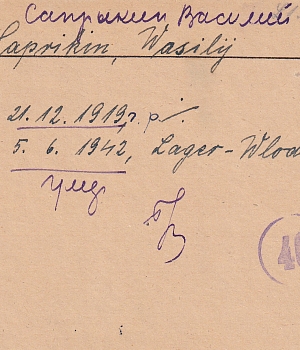 Сапрыкин Василий
Saprikin, Wasilij
21.12.1919 г.р.
5. 6. 1942, Lager-Wlod
умер